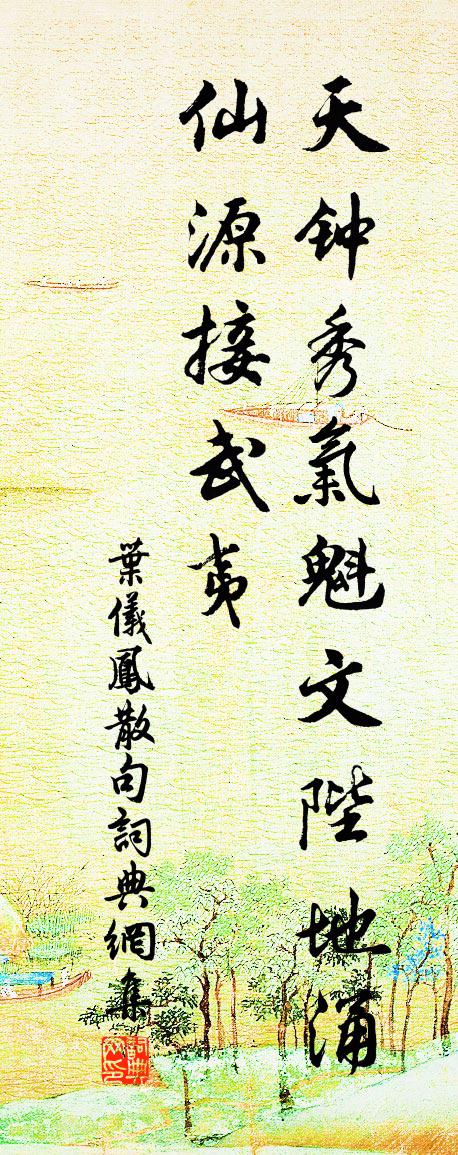 天钟秀氣魁文陛地涌
仙源接武夷
葉儀鳳散句詞典網集